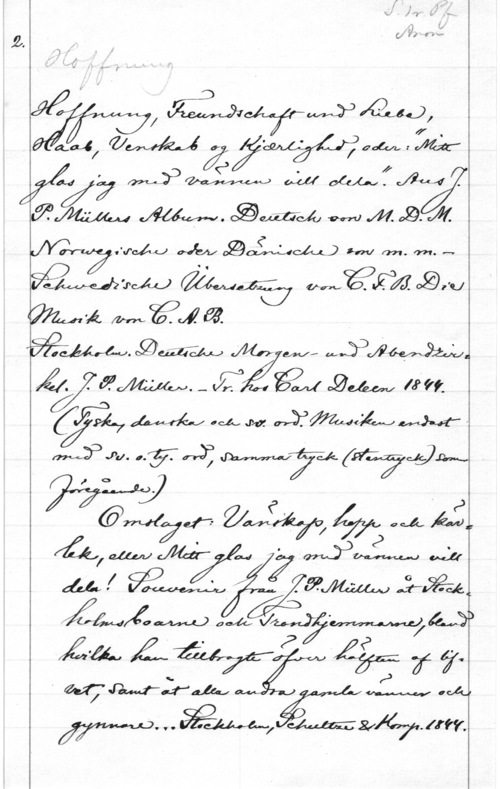 S. tr. Pf
Anon
2.
Hoffnung
Hoffnung, Freundschaft und Liebe,
Haab, Venskab og Kjærlighed, oder: "Mitt
glas jag med vännen vill dela". Aus J.
P. Müllers Album. Deutsch von M. D. M.
Norwegische oder Dänische von m. m. –
Schwedische Übersetzung von C. F. B. Die
Musik von C. A. B.
Stockholm. Deutsche Morgen- und Abendzir=
kel. J. P. Müller. – Tr. hos Carl Deleen 1844.
(Tyska, danska och sv. ord. Musiken endast
med sv. o. ty. ord, samma tryck (stentryck) som
föregående.)
Omslaget: Vänskap, hopp och kär=
lek, eller Mitt glas jag med vännen vill
dela! Souvenir från J. P. Müller åt Stock=
holmsboarne och Trondhjemmarne, bland
hvilka han tillbragte öfver hälften af lif=
vet, samt åt alla andra gamla vänner och
gynnare... Stockholm, Schultze & Komp. 1844.